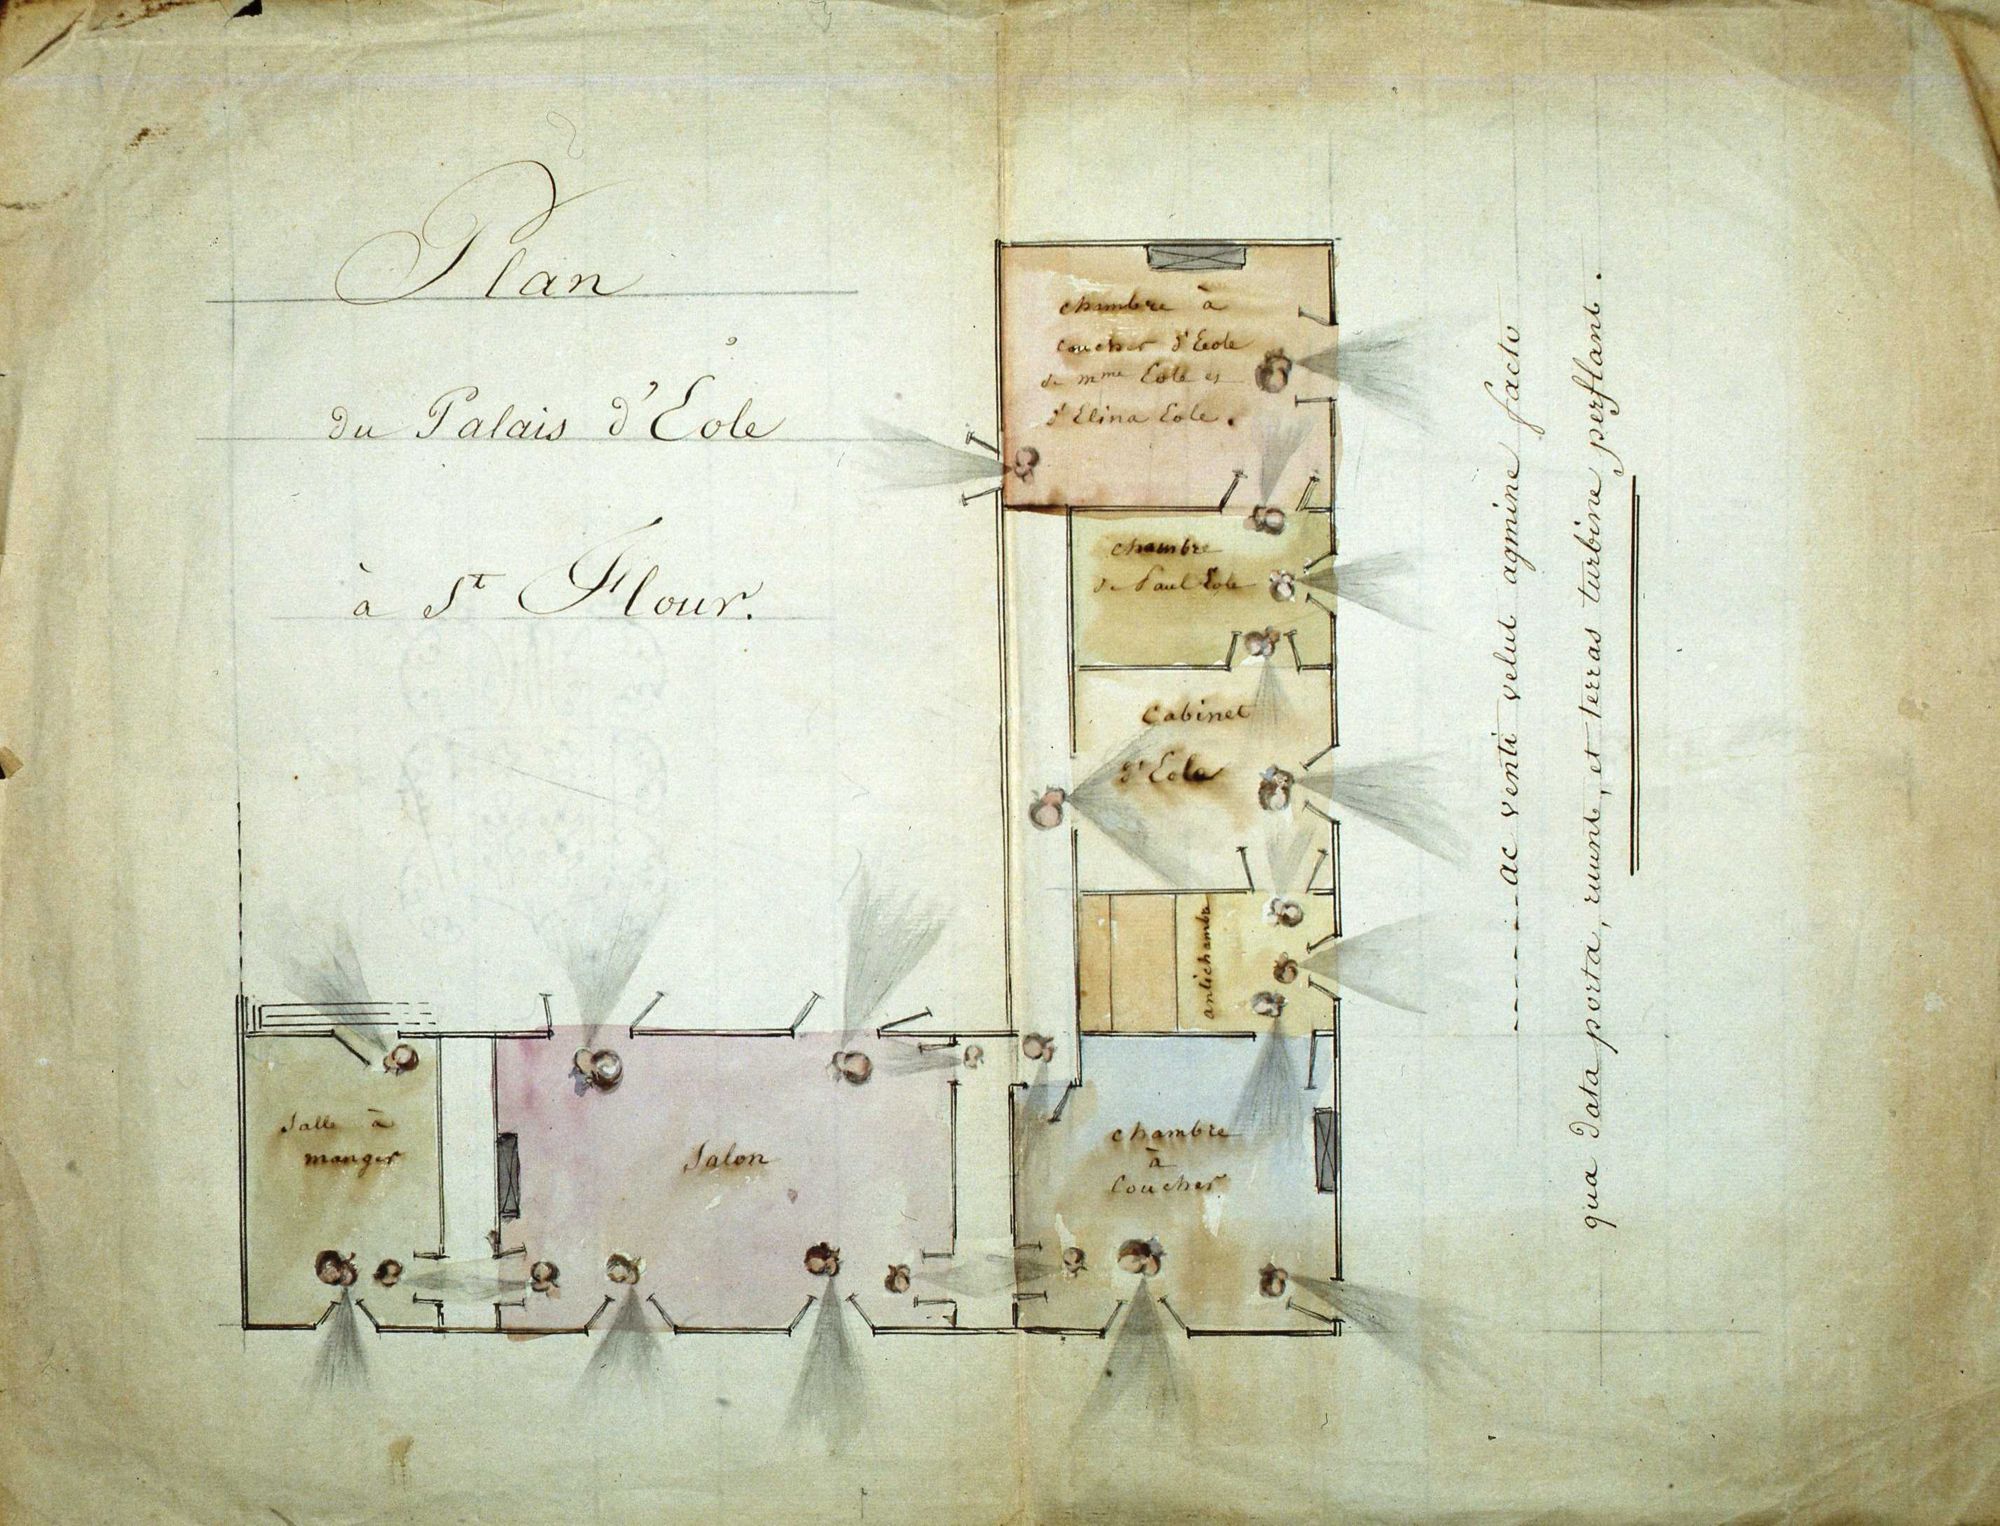 Plan
du Palais d'Eole
à St Flour.
chambre à
coucher d'Eole
de mme Eole et
d'Elina Eole.
chambre
de Paul Eole
Cabinet
d'Eole
antichambre
Salle à
manger
Salon
chambre
à
Coucher
------ac venti velut agmine facto
qua data porta, ruunt, et terras turbine perflant.